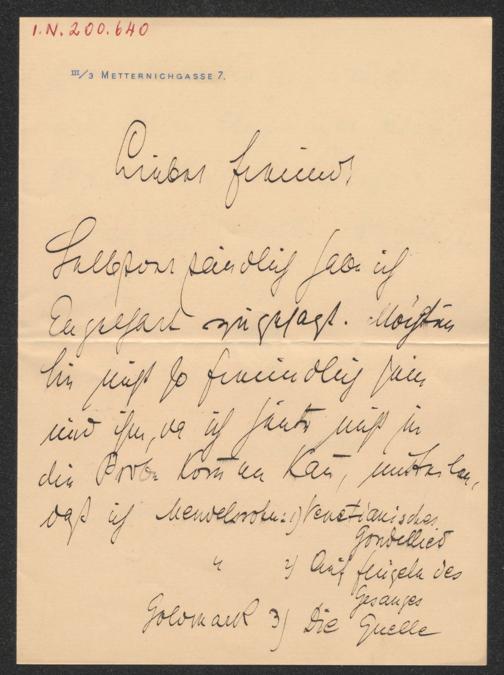 I.N. 200.640
III/3 METTERNICHGASSE 7.
Lieber Freund!
Selbstverständlich habe ich
Engelhart zugesagt. Möchten
Sie nicht so freundlich sein
und ihm, da ich heute nicht in
die Probe kommen kann, mitteilen,
daß ich Mendelssohn: 1) Venetianisches
Gondellied
" 2) Auf flügeln des
Gesanges
Goldmark 3) Die Quelle